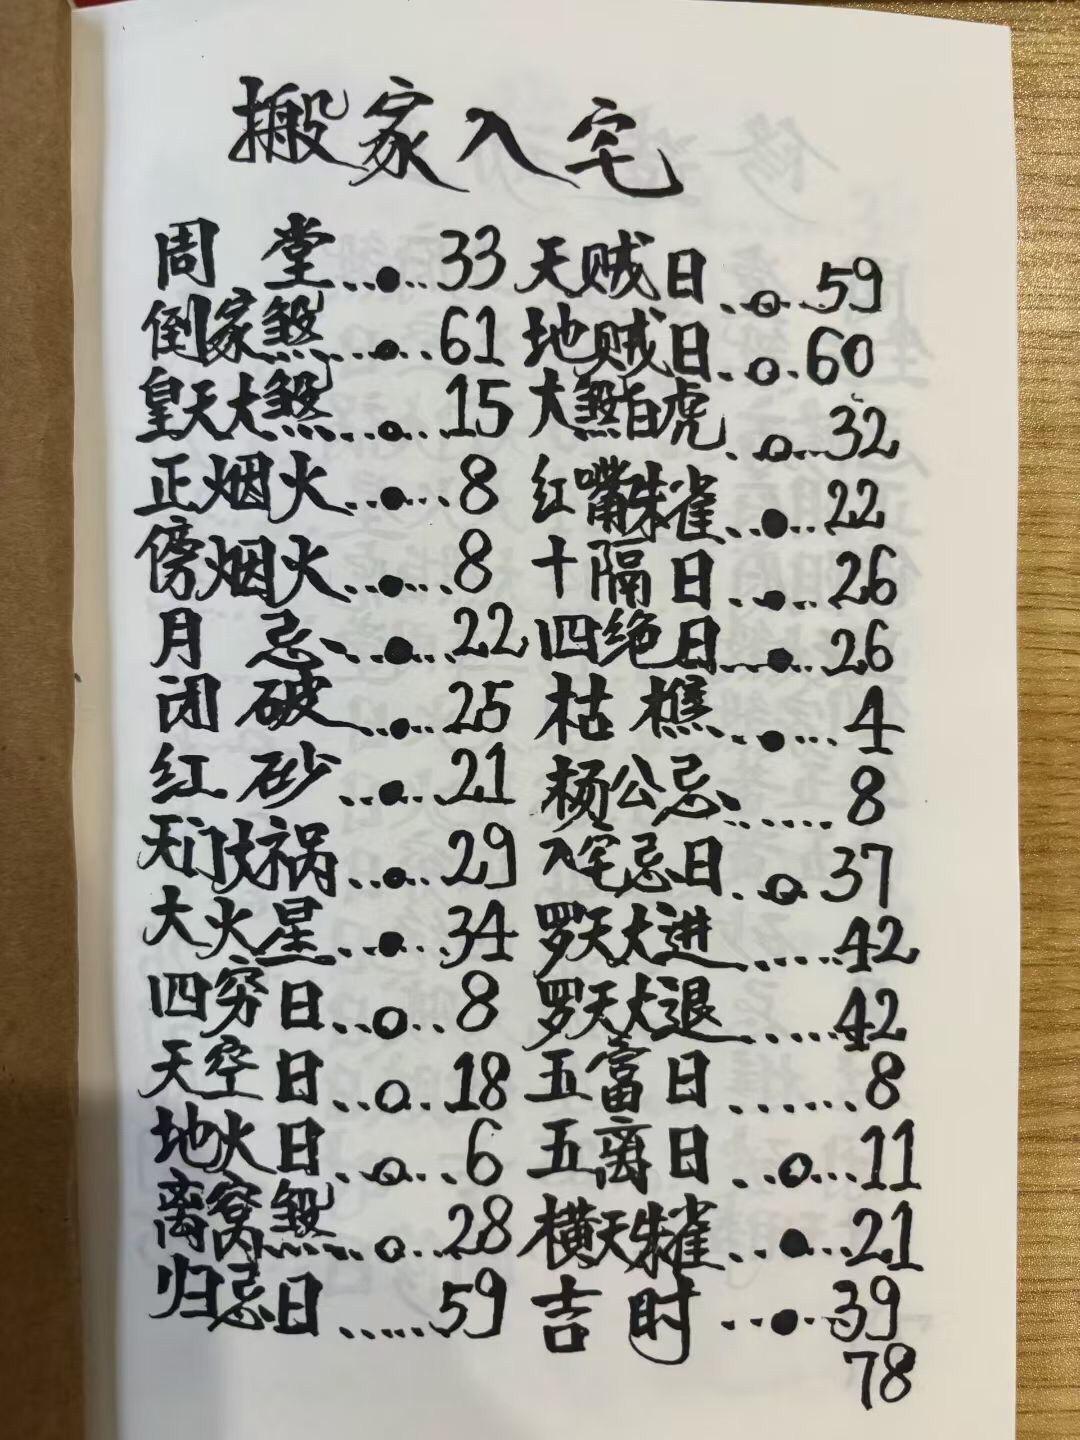 搬家入宅
周堂..●..33
倒家煞...●..61
皇天大煞...o...15
正烟火...●...8
傍烟火...●...8
月忌...●...22
闭破...●..25
红砂...o..21
天门大祸...o..29
大火星...●...34
四穷日...o..8
天空日...o..18
地火日...o..6
离窝煞...o...28
归忌日......59
天贼日..o...59
地贼日..o..60
大煞白虎..o...32
红嘴朱雀..●..22
十隔日..●...26
四绝日...●...26
枯樵..●...4
杨公忌.......8
入宅忌日..o..37
罗天大进......42
罗天大退......42
五富日.......8
五离日..o...11
横天朱雀..●...21
吉时..●...39
78